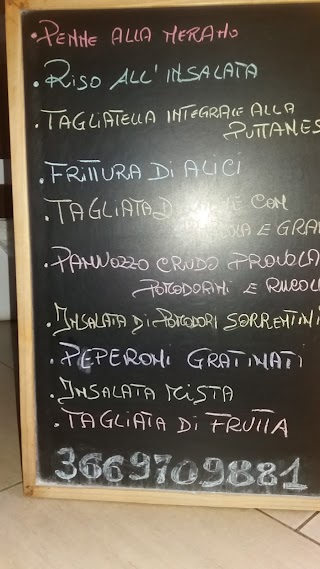 • PENNE ALLA MERANO
• RISO ALL'INSALATA
• TAGLIATELLA INTEGRALE ALLA
PUTTANES
• FRITTURA DI ALICI
• TAGLIATA D CON
E GRA
• PANNOZZO CRUDO PROVOLA
POMODORINI E RUCOL
• INSALATA DI POMODORI SORRENTINI
• PEPERONI GRATINATI
• INSALATA MISTA
• TAGLIATA DI FRUTTA
3669709881